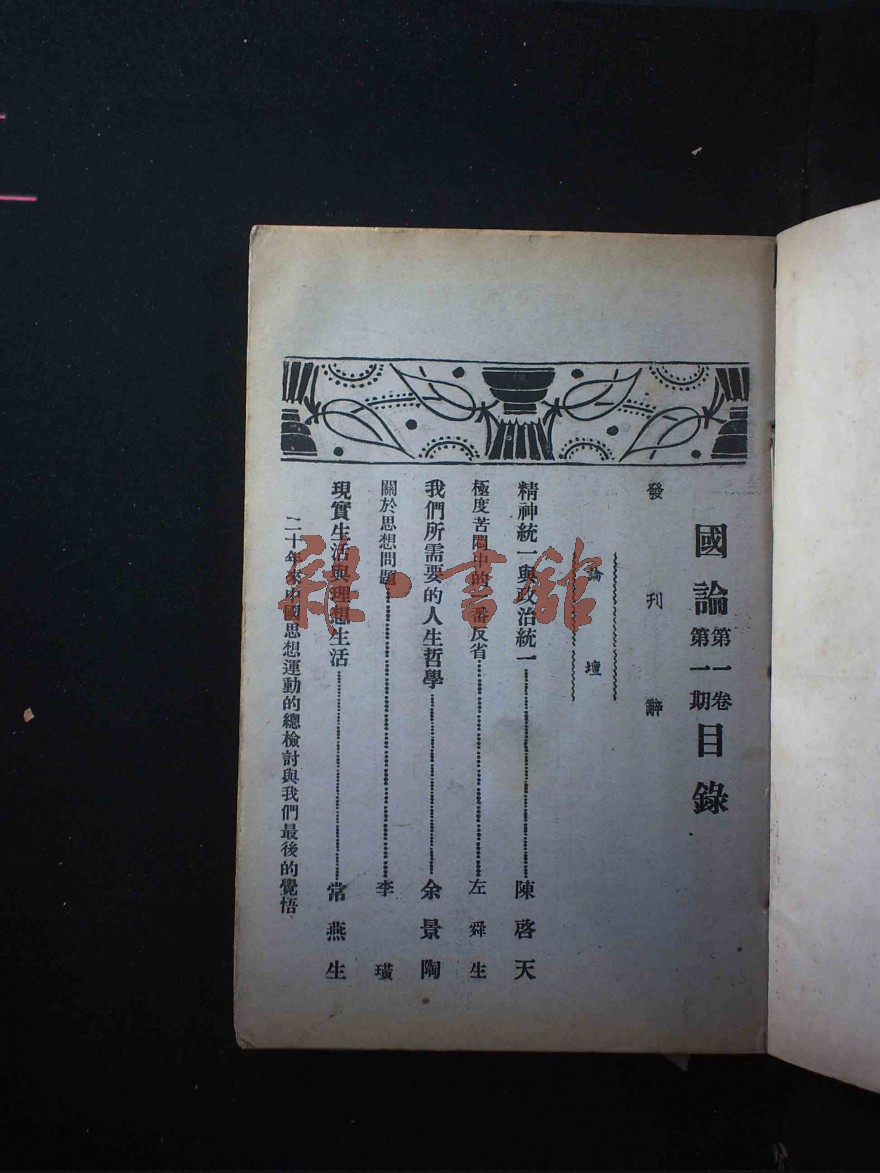 國論第一卷第一期目錄
發刊辭
論壇
精神統一與政治統一 陳啓天
極度苦悶中的一番反省 左舜生
我們所需要的人生哲學 余景陶
關於思想問題 李璜
現實生活與理想生活 常燕生
二十年來中國思想運動的總檢討與我們最後的覺悟
雜·書館